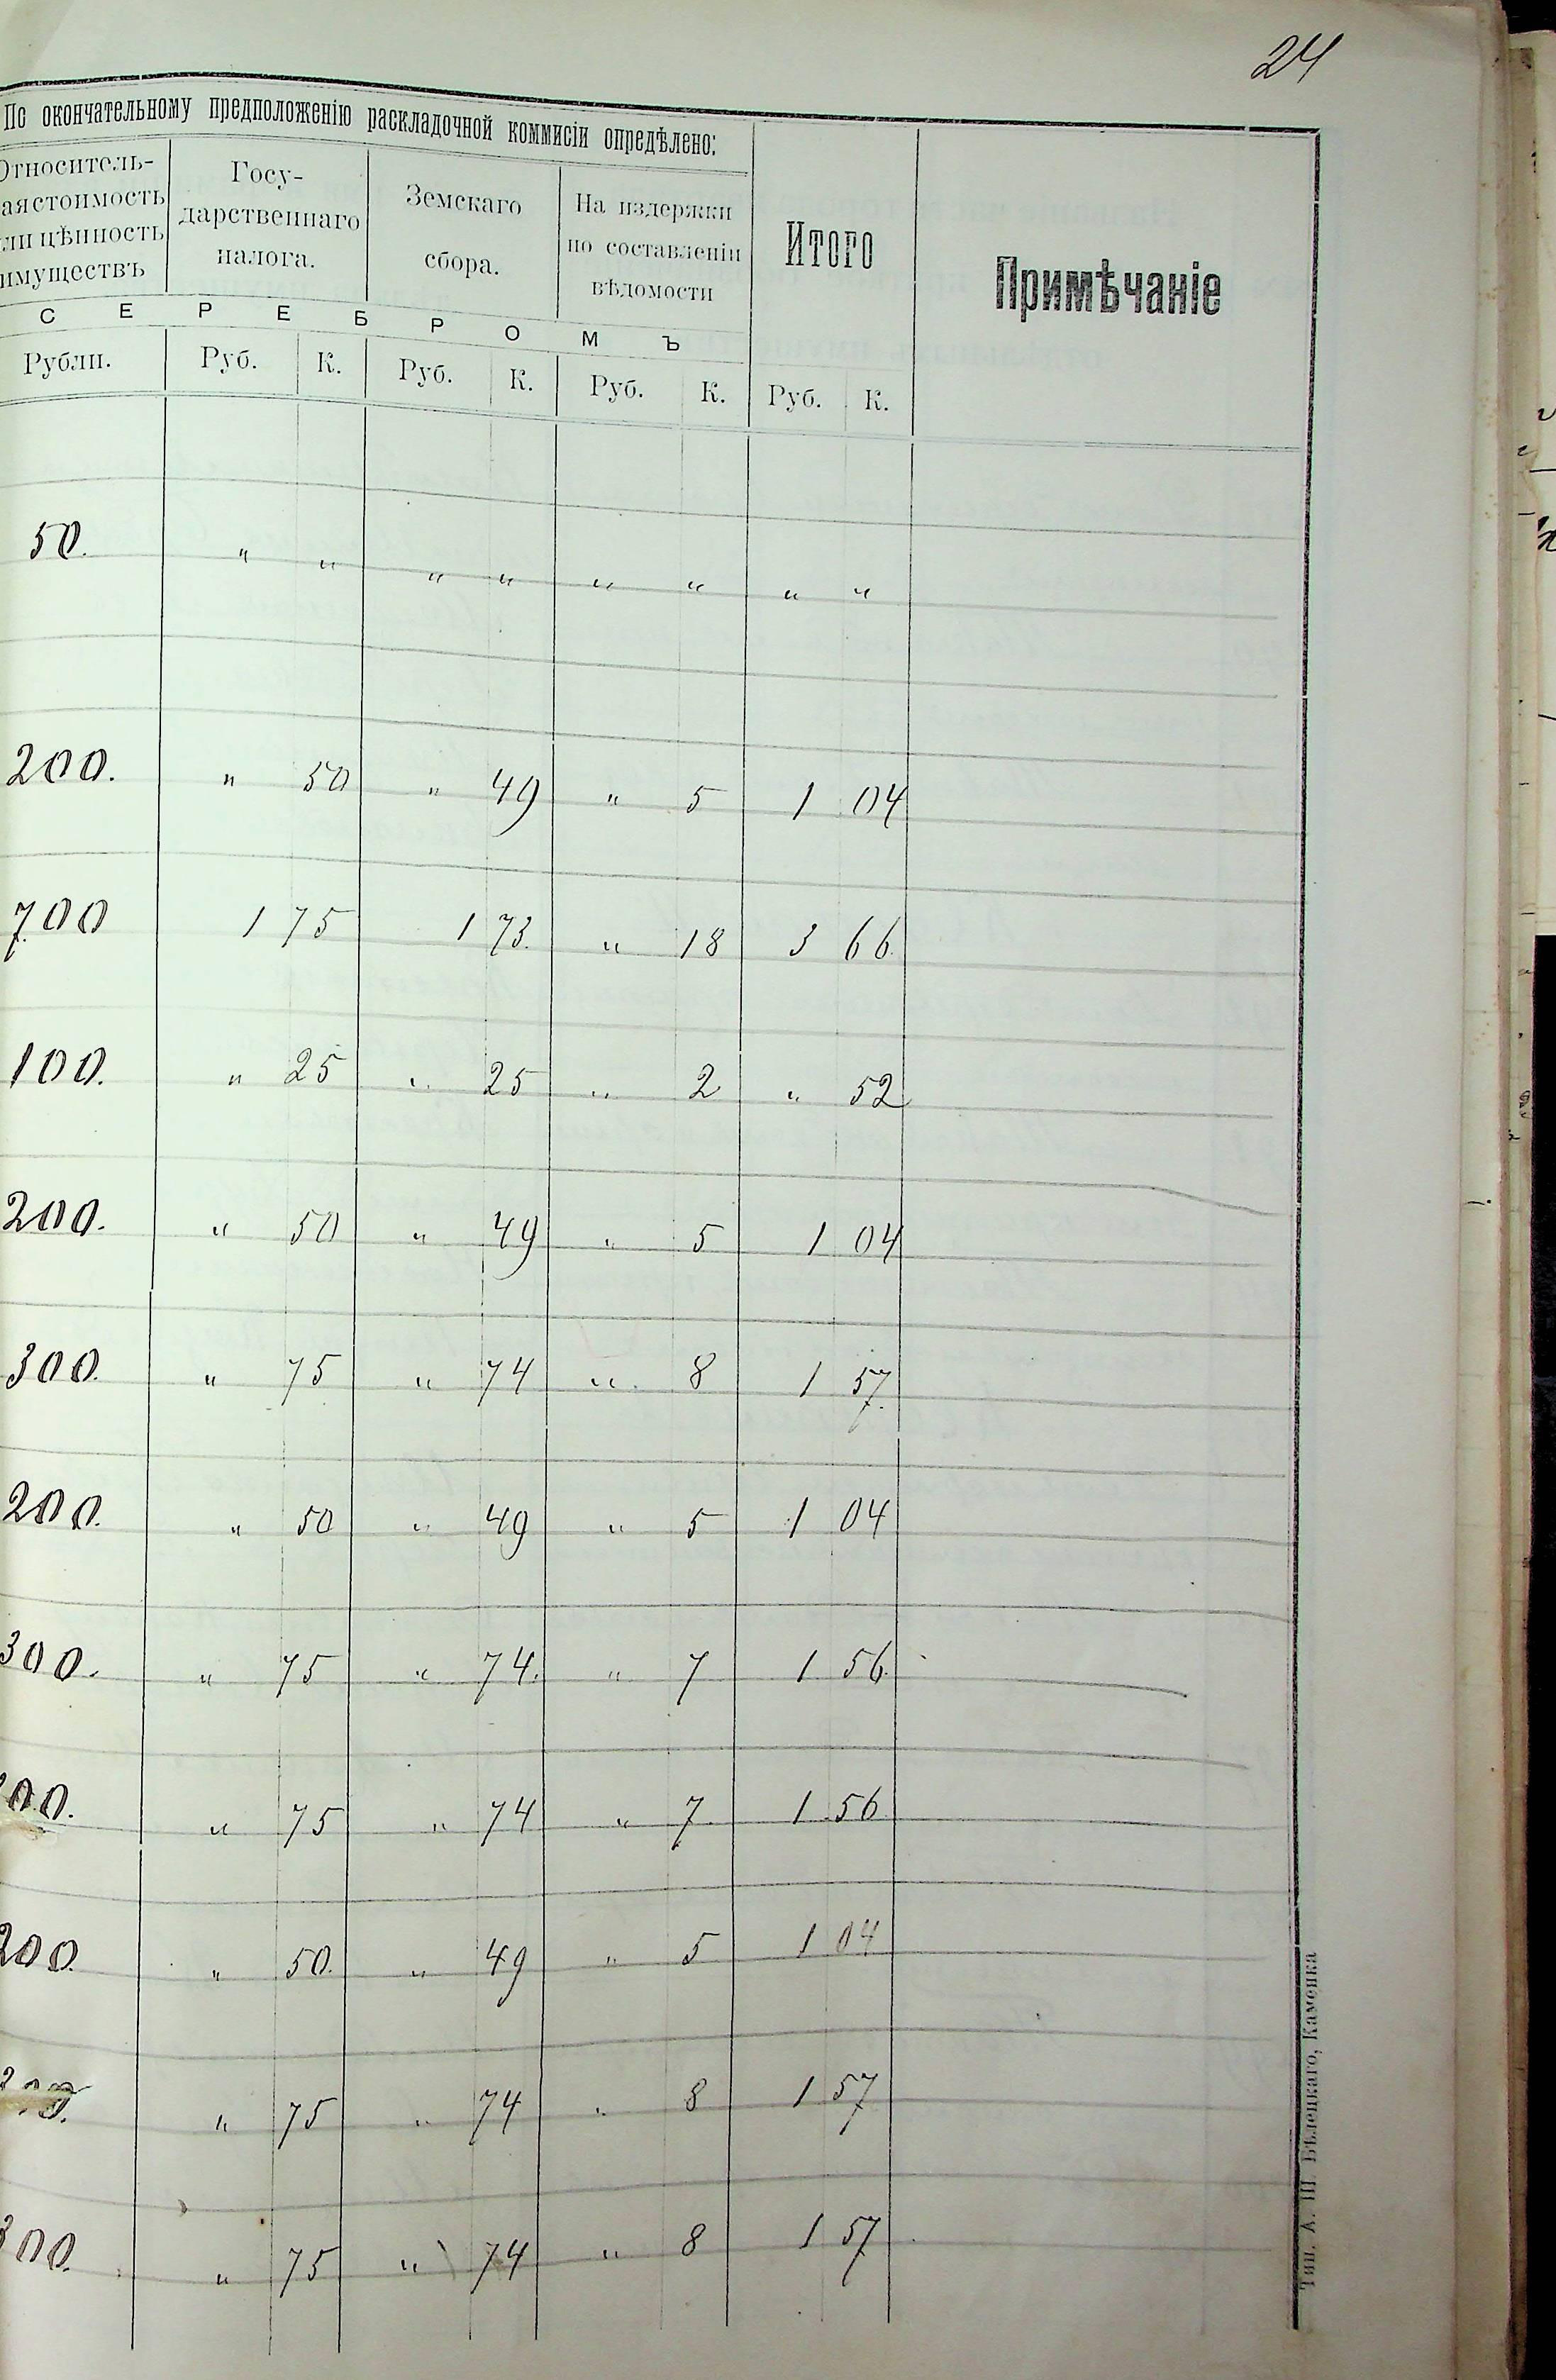 24
По окончательному предположенію раскладочной коммисіи опредѣлено:
Относитель-
ая стоимость
ли цѣнность
имуществъ
Госу-
дарственнаго
налога.
Земскаго
сбора.
На издержки
по составленіи
вѣдомости
Итого
Примѣчаніе
С Е Р Е Б Р О М Ъ
Рубли. Руб. К. Руб. К. Руб. К. Руб. К.
50. " " " " " " " "
200. " 50 " 49 " 5 1 04
700 1 75 1 73. " 18 3 66.
100. " 25 " 25 " 2 " 52
200. " 50 " 49 " 5 1 04
300. " 75 " 74 " 8 1 57.
200. " 50 " 49 " 5 1 04
300. " 75 " 74. " 7 1 56.
00. " 75 " 74 " 7. 1 56
200. " 50. " 49 " 5 1 04
" 75 " 74 " 8 1 57
300. " 75 " 74 " 8 1 57
Тип. А. Ш. Бѣлецкаго, Каменка